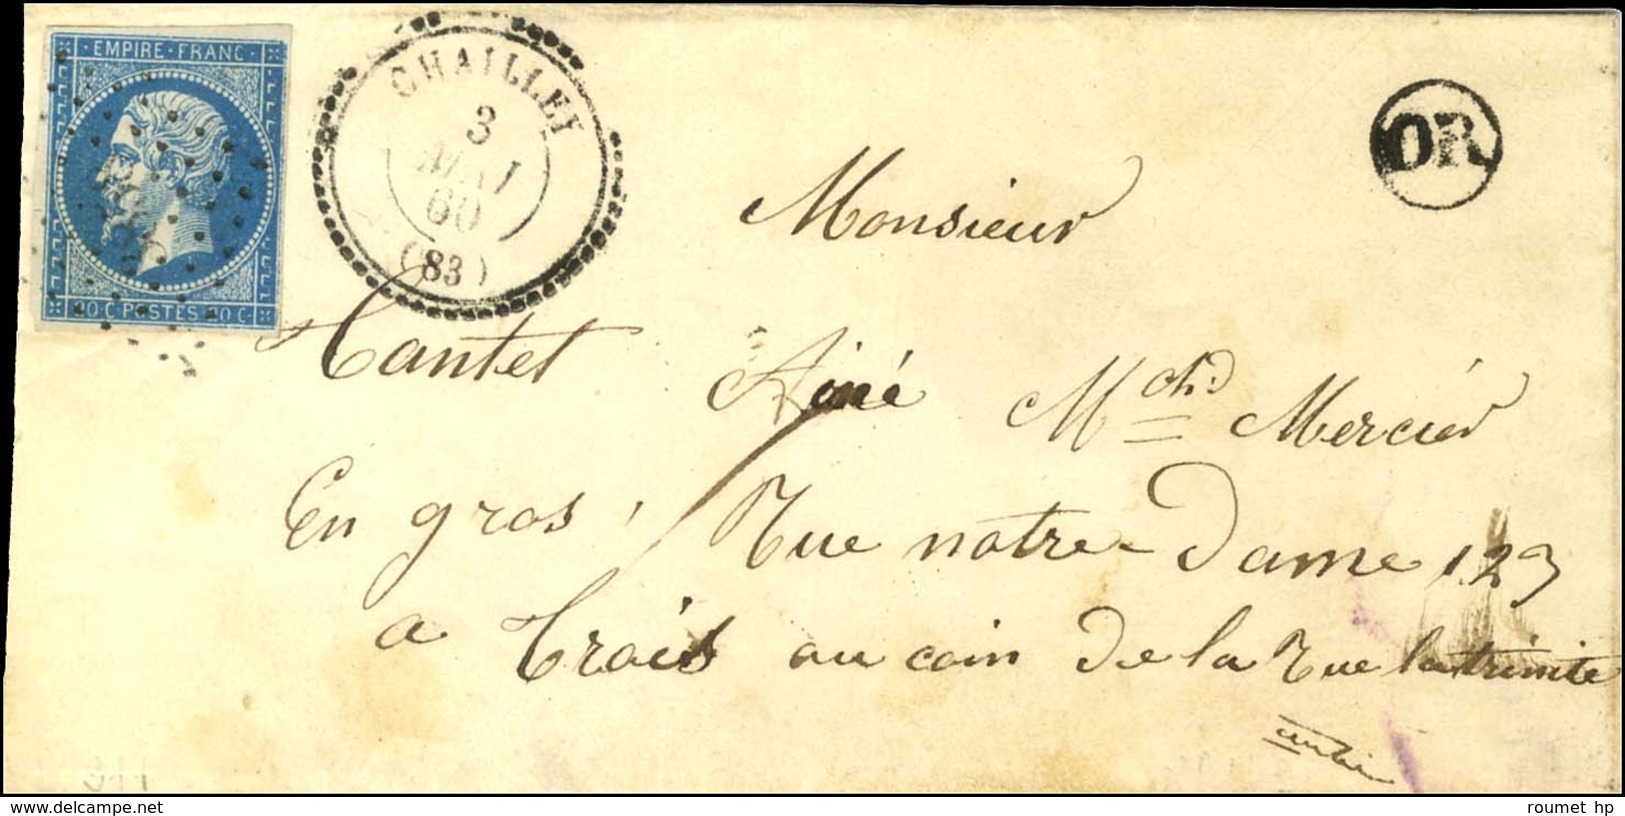 EMPIRE · FRANC ·
20 C POSTES 20 C
CHAILLEY
3
MAI
60
(83)
OR
Monsieur
Tantet Ainé Mchd Mercier
En gros, Rue notre-Dame 123
a Troies au coin de la Rue la trinite
aube
roumet hp